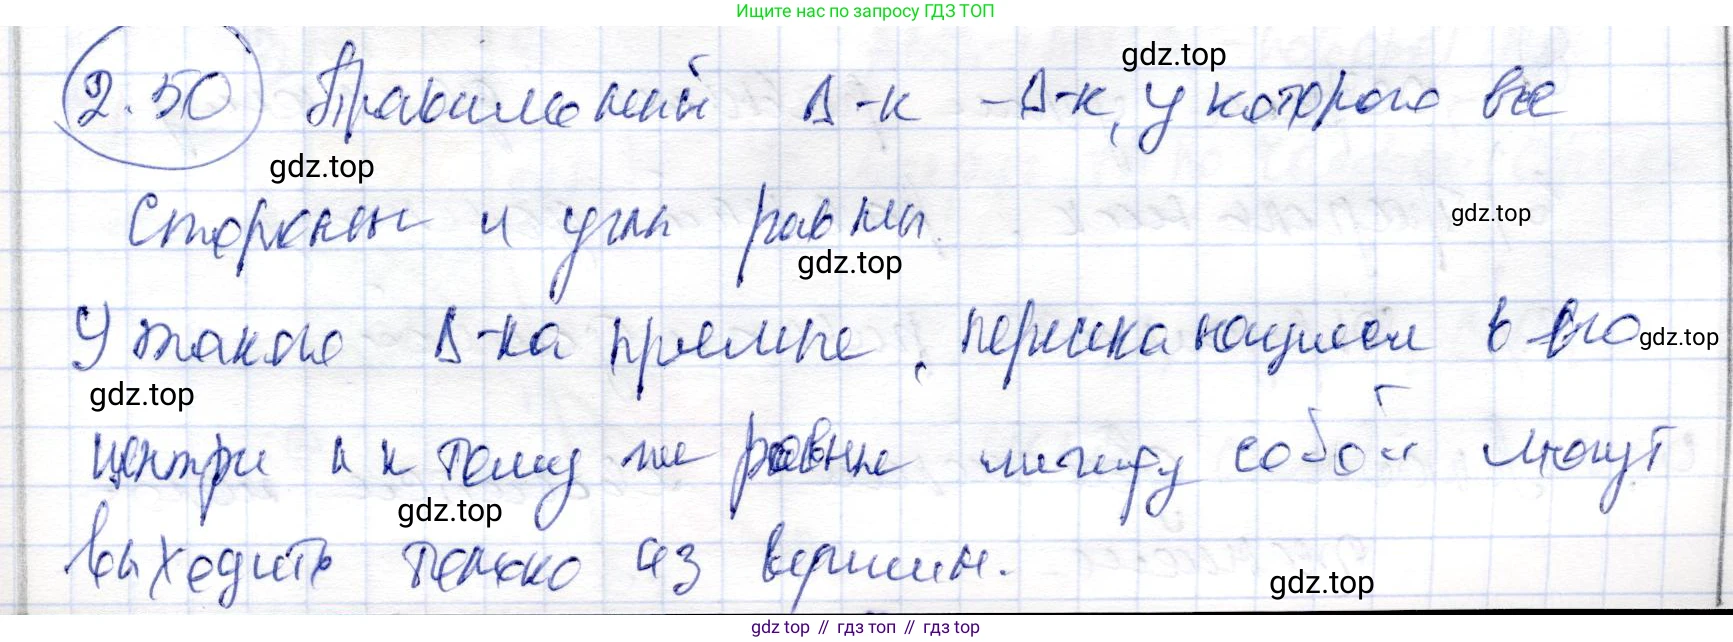 Ищите нас по запросу ГДЗ ТОП
2.50 Правильный Δ-к – Δ-к, у которого все
gdz.top
gdz.top
стороны и углы равны.
gdz.top
gdz.top
У такого Δ-ка прямые, пересекающиеся в его
gdz.top
gdz.top
центре и к тому же равные между собой могут
gdz.top
выходить только из вершин.
gdz.top
gdz top // гдз топ // гдз top